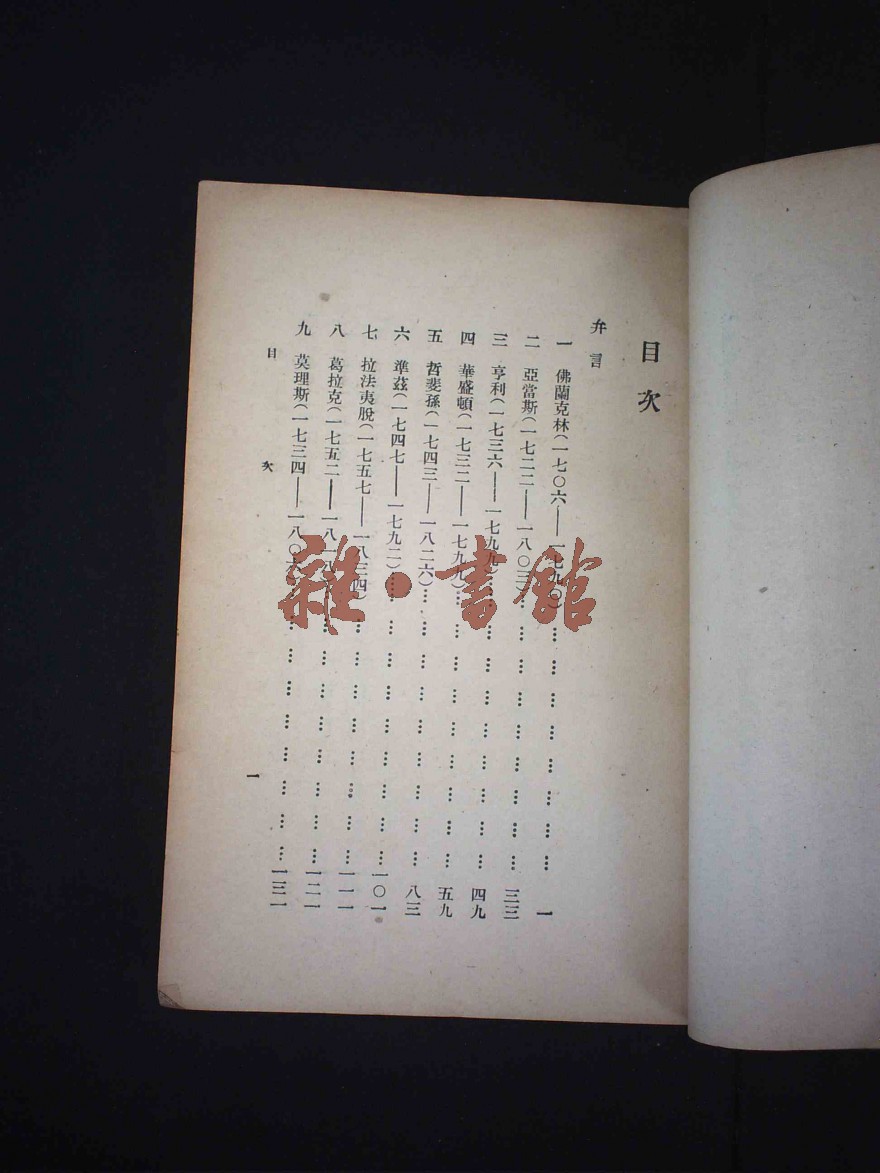 目次
弁言
一 佛蘭克林(一七〇六——一七九〇)… … … … … … … … 一
二 亞當斯(一七二二——一八〇三… … … … … … … … … 三三
三 亨利(一七三六——一七九九)… … … … … … … … … 四九
四 華盛頓(一七三二——一七九九)… … … … … … … … … 五九
五 哲斐孫(一七四三——一八二六)… … … … … … … … … 八三
六 準茲(一七四七——一七九二)… … … … … … … … … 一〇一
七 拉法夷脫(一七五七——一八三四)… … … … … … … … 一一一
八 葛拉克(一七五二——一八一八… … … … … … … … 一二一
九 莫理斯(一七三四——一八〇六)… … … … … … … … 一三一
目次
一
雜·書館